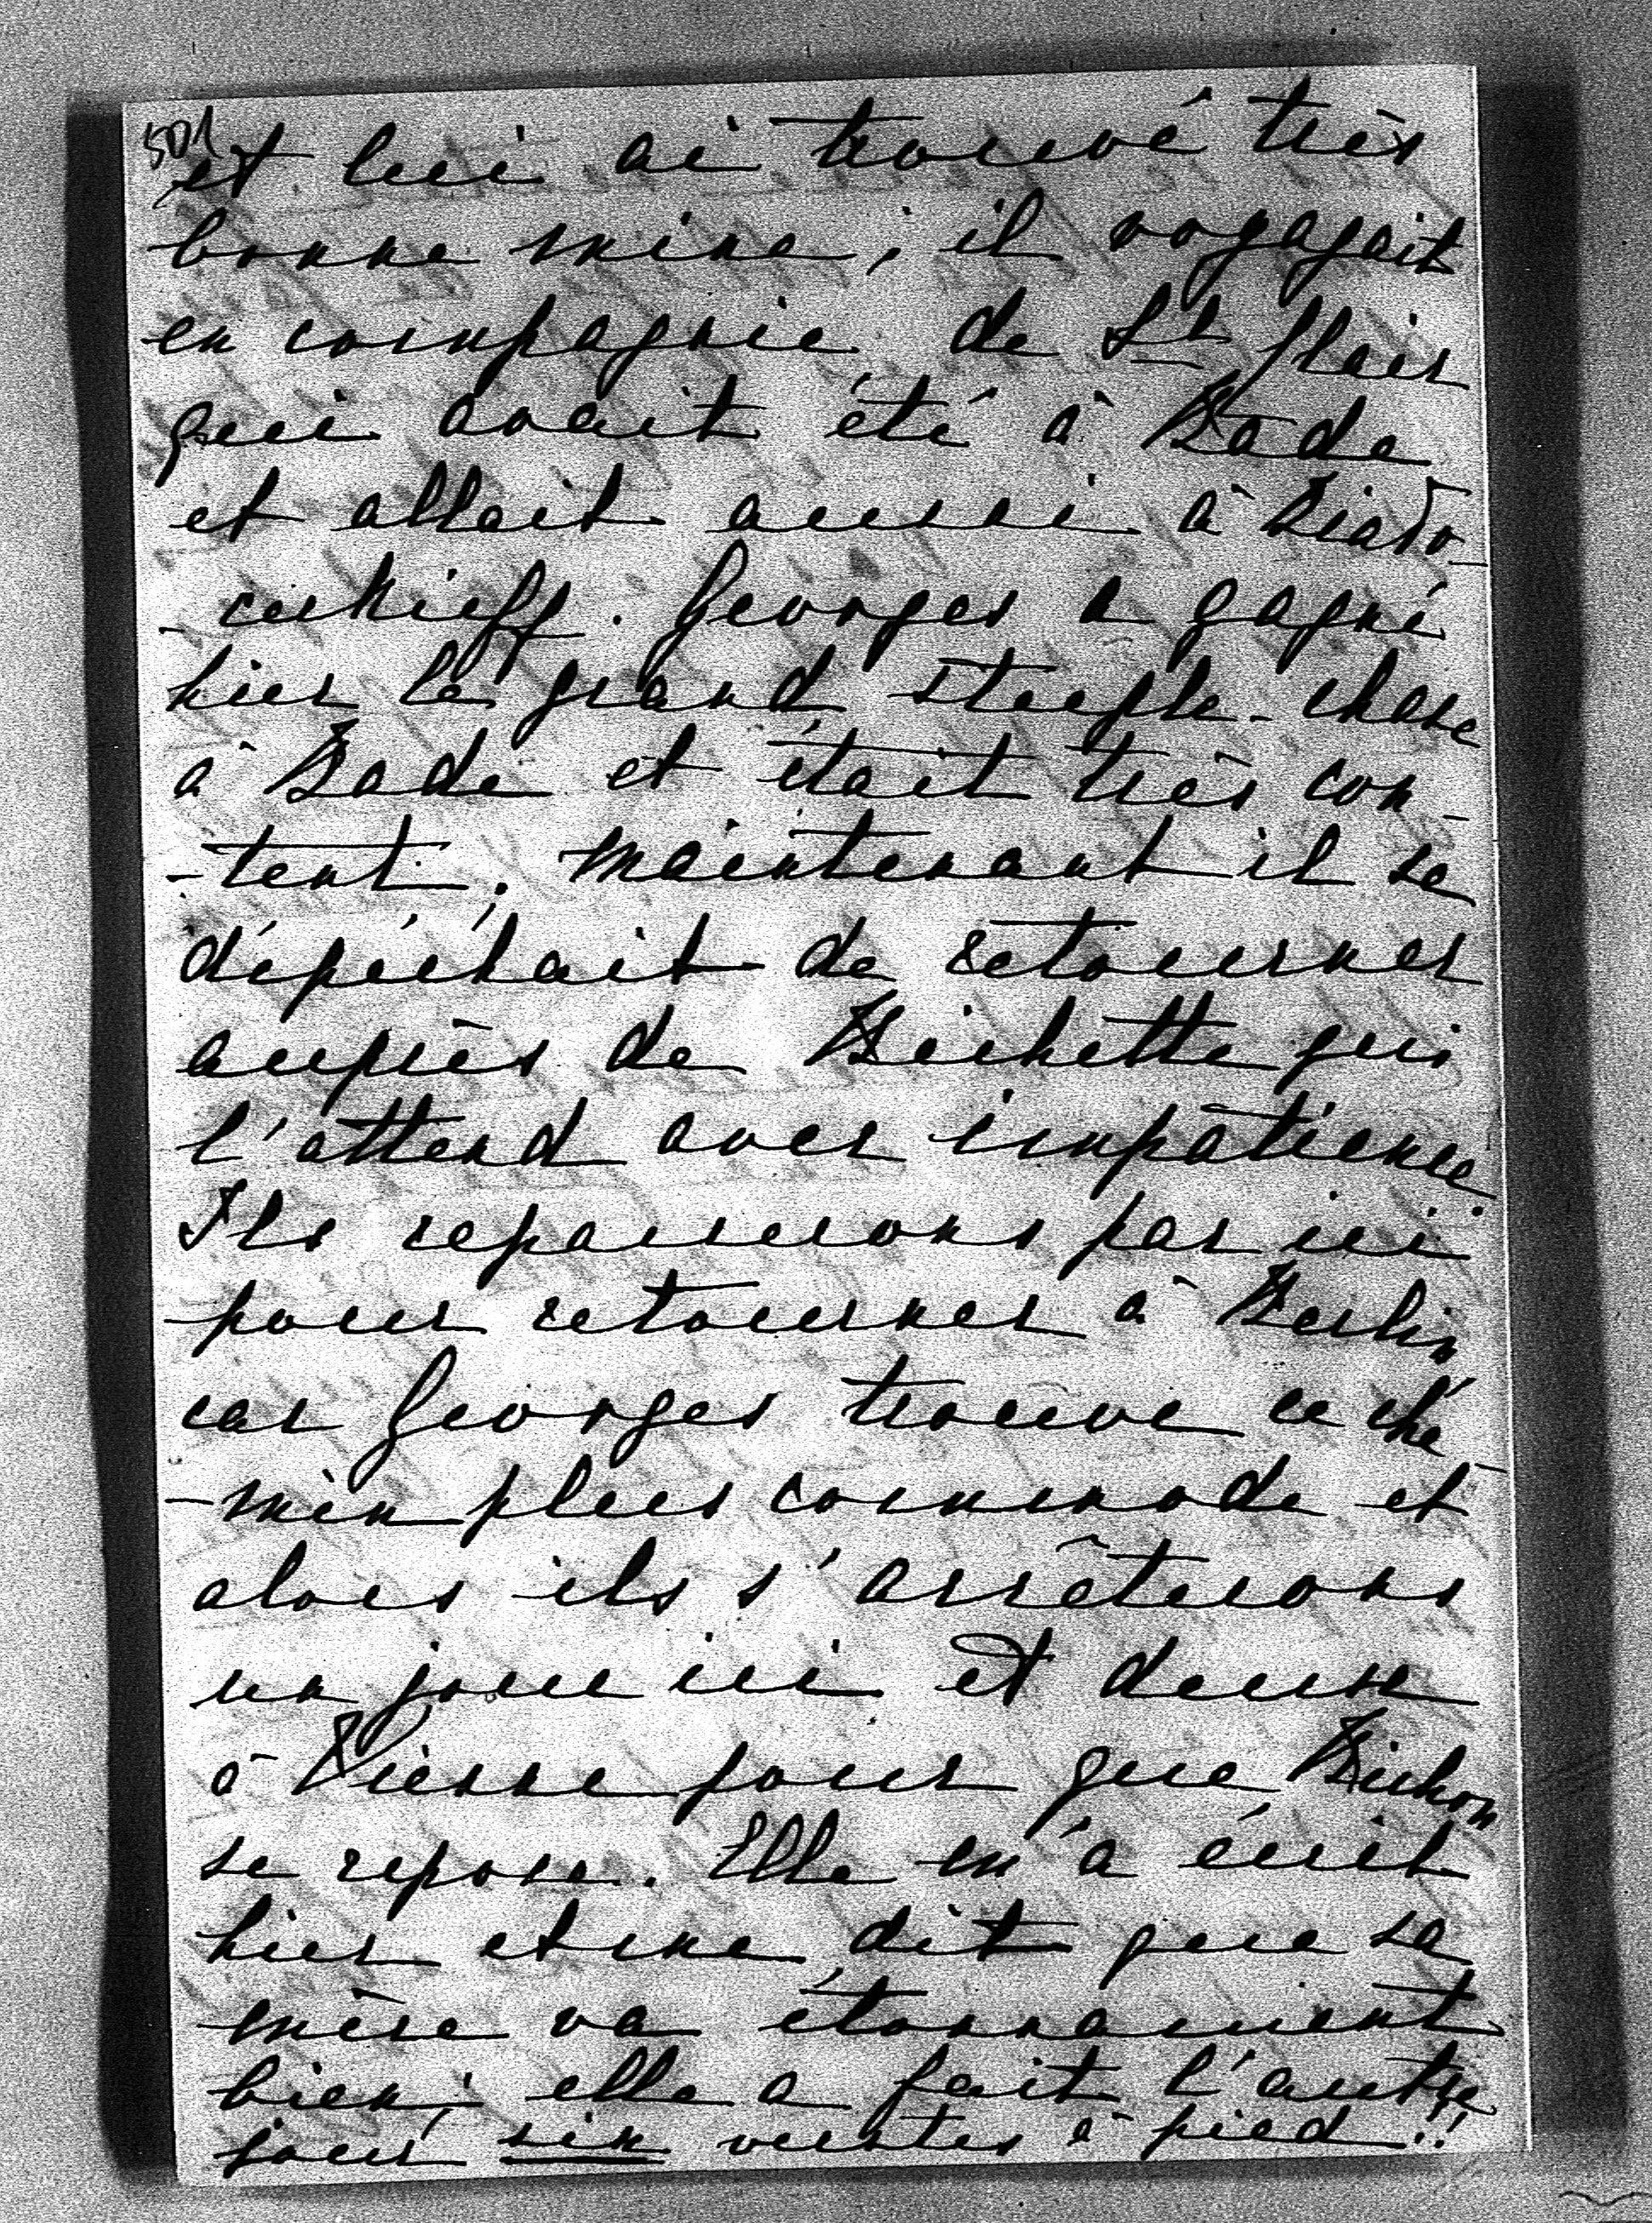 501
et lui ai trouvé très
bonne mine, il voyageait
en compagnie de
qui avait été à Bade
et allait aussi à Biaso-
-cerkieff. Georges a gagné
hier le grand steeple-chase
à Bade et était très con-
-tent; maintenant il se
dépêchait de retourner
auprès de Bichette qui
l'attend avec impatience.
Ils repasserons par ici
pour retourner à Berlin
car Georges trouve ce che-
-min plus commode et
alors ils s'arrêterons
un jour ici et deux
à Vienne pour que Bichon
se repose. Elle m'a écrit
hier et me dit que sa
mère va étonnament
bien; elle a fait l'autre
jour six verstes à pied!!